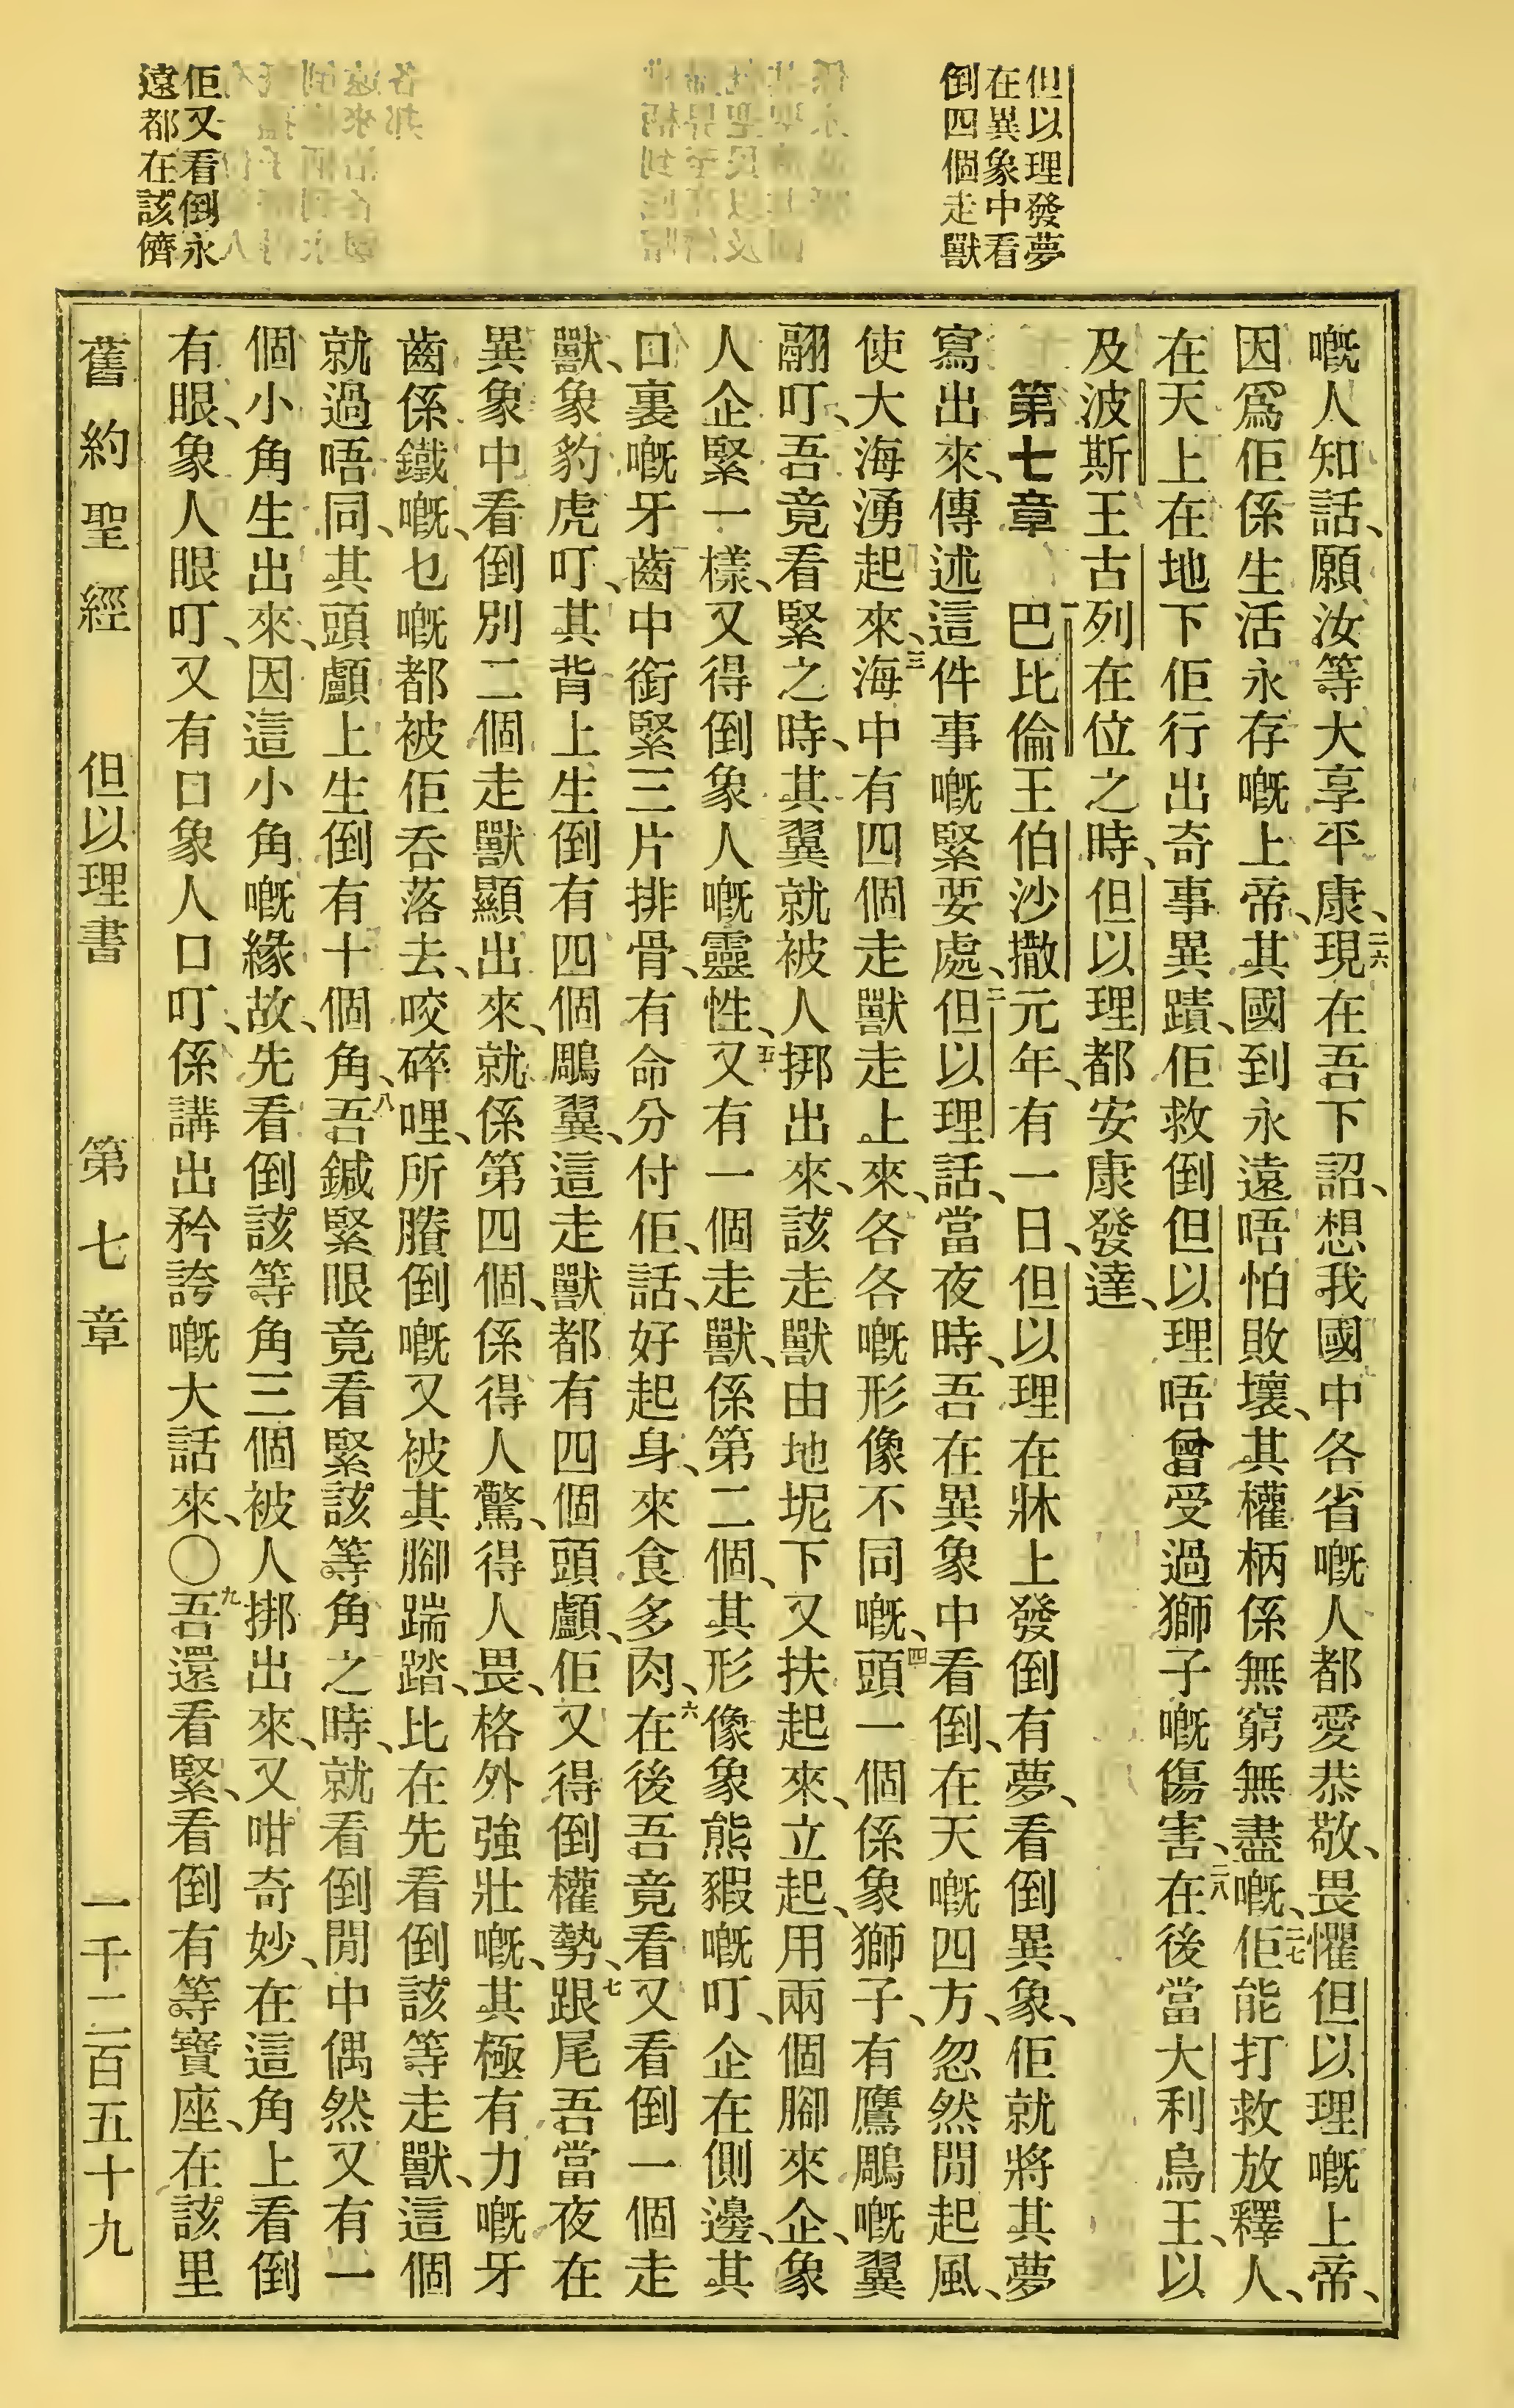 但以理發夢
在異象中看
倒四個走獸
佢又看倒永
遠都在該儕
嘅人知話、願汝等大享平康、二六現在吾下詔、想我國中各省嘅人都愛恭敬、畏懼但以理嘅上帝、
因爲佢係生活永存嘅上帝、其國到永遠唔怕敗壞、其權柄係無窮無盡嘅、二七佢能打救放釋人、
在天上在地下佢行出奇事異蹟、佢救倒但以理唔曾受過獅子嘅傷害、二八在後當大利烏王、以
及波斯王古列在位之時、但以理都安康發達、
第七章 一巴比倫王伯沙撒元年、有一日、但以理在牀上發倒有夢、看倒異象、佢就將其夢
寫出來、傳述這件事嘅緊要處、二但以理話、當夜時、吾在異象中看倒、在天嘅四方、忽然閒起風、
使大海湧起來、三海中有四個走獸走上來、各各嘅形像不同嘅、四頭一個係象獅子、有鷹鵰嘅翼
翮叮、吾竟看緊之時、其翼就被人挷出來、該走獸由地坭下又扶起來、立起、用兩個腳來企、象
人企緊一樣、又得倒象人嘅靈性、五又有一個走獸、係第二個、其形像象熊豭嘅叮、企在側邊、其
口裏嘅牙齒中銜緊三片排骨、有命分付佢、話、好起身、來食多肉、六在後吾竟看又看倒一個走
獸、象豹虎叮、其背上生倒有四個鵰翼、這走獸都有四個頭顱、佢又得倒權勢、七跟尾吾當夜在
異象中看倒別二個走獸顯出來、就係第四個、係得人驚、得人畏、格外強壯嘅、其極有力嘅牙
齒係鐵嘅、乜嘅都被佢吞落去、咬碎哩、所賸倒嘅又被其腳踹踏、比在先看倒該等走獸、這個
就過唔同、其頭顱上生倒有十個角、八吾鍼緊眼竟看緊該等角之時、就看倒閒中偶然又有一
個小角生出來、因這小角嘅緣故、先看倒該等角三個被人挷出來、又咁奇妙、在這角上看倒
有眼、象人眼叮、又有口象人口叮、係講出矜誇嘅大話來、〇九吾還看緊、看倒有等寶座、在該里
舊約聖經 但以理書 第七章 一千二百五十九